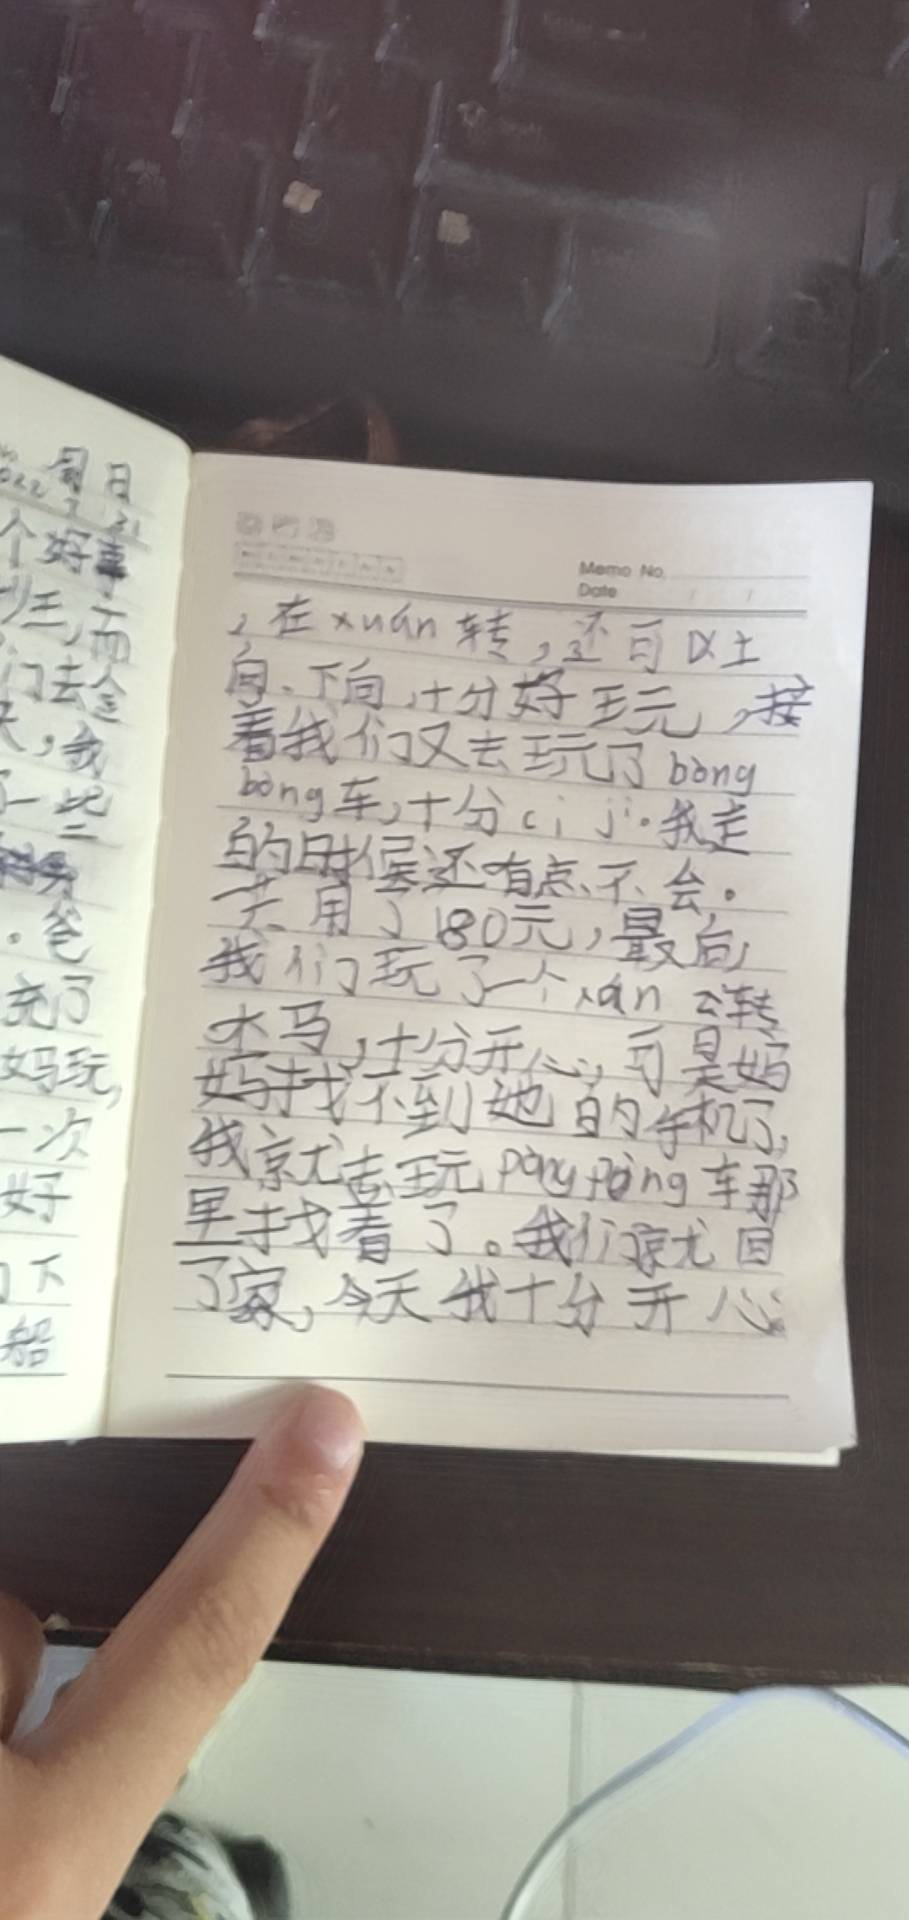 周日
个好事
,而
门去金
天,我
了一些
。爸
充了
妈玩,
一次
好
下
船
Memo No.
Date / /
,在xuán转,还可以上
向、下向,十分好玩,接
着我们又去玩了bòng
bòng车,十分cì jī。我走
的时候还有点不会。
共用了180元,最后,
我们玩了一个xán 转
木马,十分开心,可是妈
妈找不到她的手机了,
我就去玩pòng pòng车那
里找着了。我们就回
了家,今天我十分开心